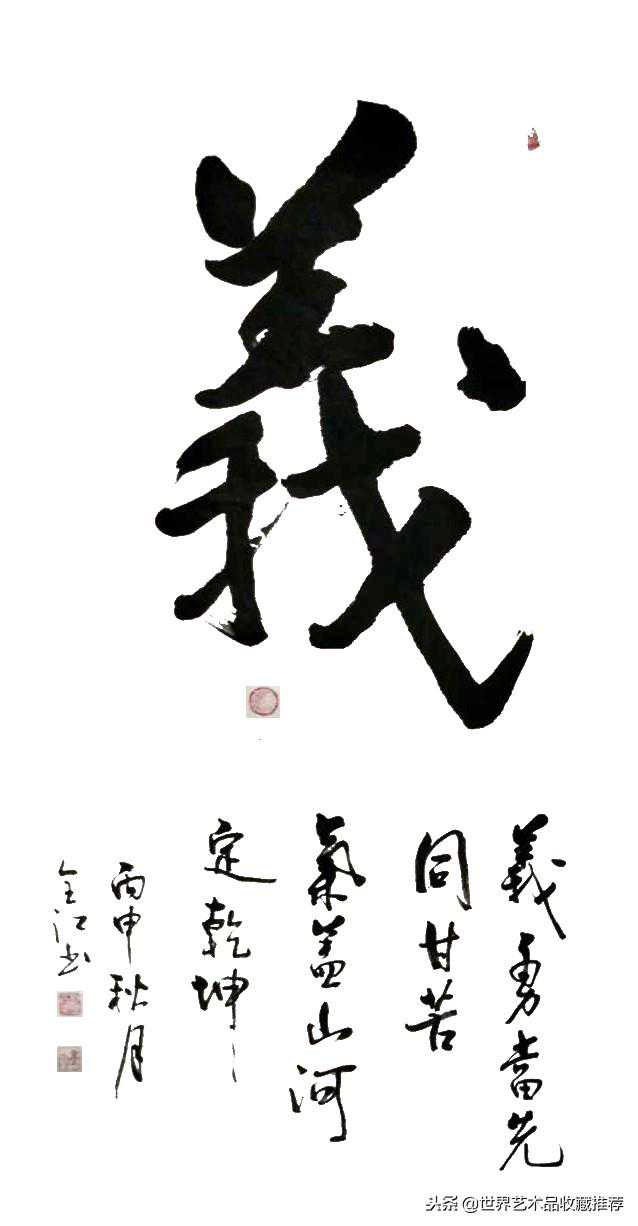 義
義勇當先
同甘苦
氣蓋山河
定乾坤
丙申秋月
全江书
头条 @世界艺术品收藏推荐